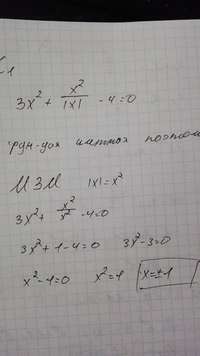 3x² + x²/|x| - 4 = 0
фун-ция четная поэтом
|x| = x²
3x² + x²/x² - 4 = 0
3x² + 1 - 4 = 0 3x² - 3 = 0
x² - 1 = 0 x² = 1 x = ±1